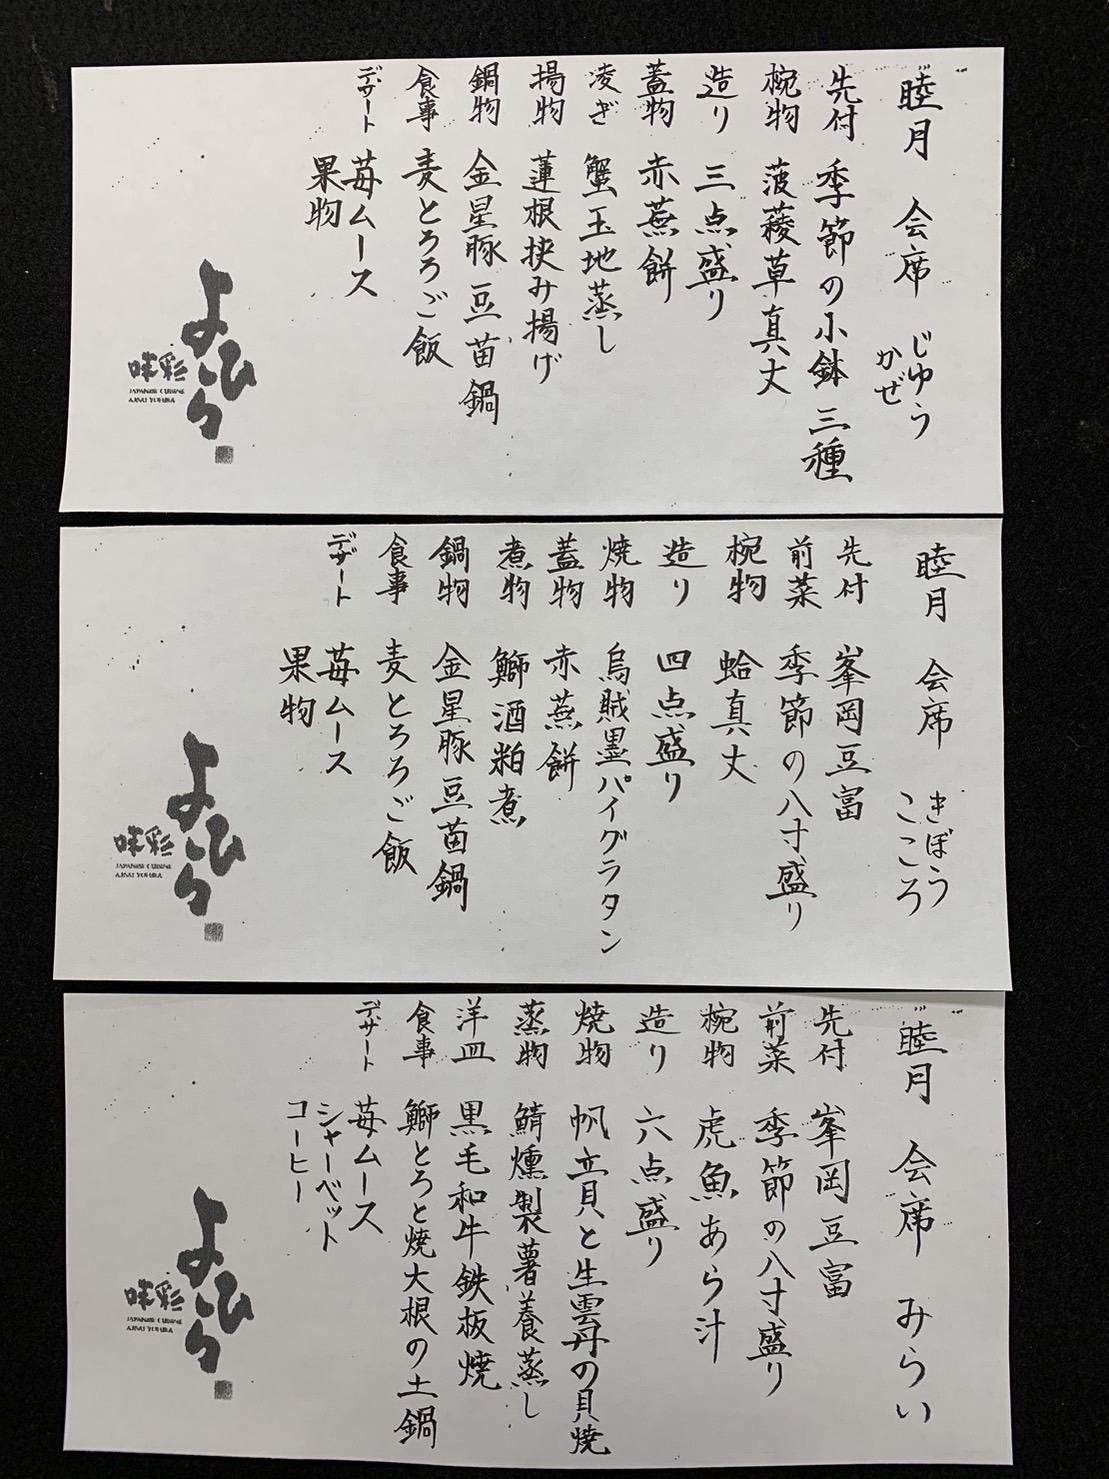 睦月 会席 じゆう
かぜ
先付 季節の小鉢 三種
椀物 菠薐草真丈
造り 三点盛り
蓋物 赤蕪餅
凌ぎ 蟹玉地蒸し
揚物 蓮根挟み揚げ
鍋物 金星豚豆苗鍋
食事 麦とろろご飯
デザート 苺ムース
果物
よひら
味彩和
JAPANESE CUISINE
AJISAI YOHIRA
睦月 会席 きぼう
こころ
先付 峯岡豆富
前菜 季節の八寸盛り
椀物 蛤真丈
造り 四点盛り
焼物 烏賊墨パイグラタン
蓋物 赤蕪餅
煮物 鰤酒粕煮
鍋物 金星豚豆苗鍋
食事 麦とろろご飯
デザート 苺ムース
果物
よひら
味彩和
JAPANESE CUISINE
AJISAI YOHIRA
睦月 会席 みらい
先付 峯岡豆富
前菜 季節の八寸盛り
椀物 虎魚あら汁
造り 六点盛り
焼物 帆立貝と生雲丹の貝焼
蒸物 鯖燻製薯蕷蒸し
洋皿 黒毛和牛鉄板焼
食事 鰤とろと焼大根の土鍋
デザート 苺ムース
シャーベット
コーヒー
よひら
味彩和
JAPANESE CUISINE
AJISAI YOHIRA